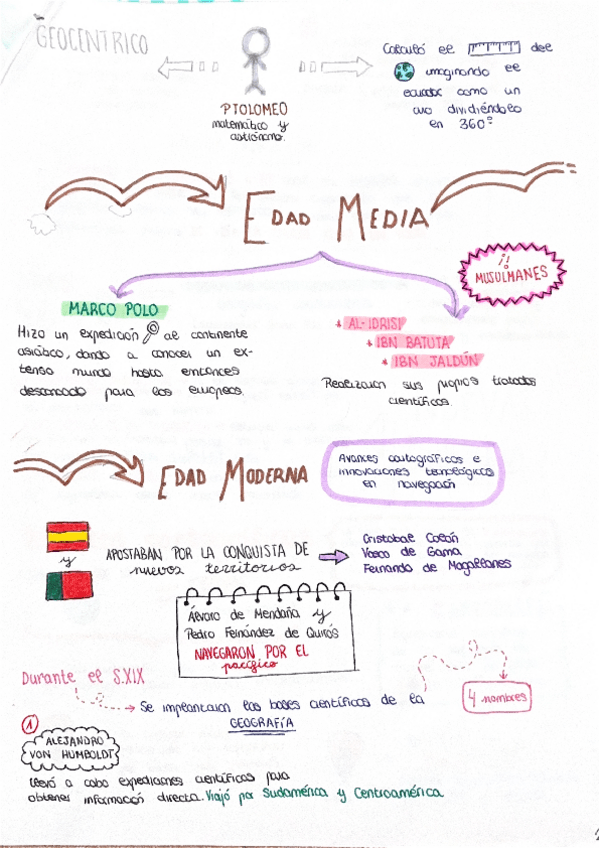 GEOCENTRICO
PTOLOMEO
matemático y
astrónomo.
Calculó el del
imaginando el
ecuador como un
aro dividiéndolo
en 360º
EDAD MEDIA
¡!
MUSULMANES
MARCO POLO
Hizo un expedición al continente
asiático, dando a conocer un ex-
tenso mundo hasta entonces
desconocido para los europeos.
* AL-IDRISI
* IBN BATUTA
* IBN JALDÚN
Realizaron sus propios tratados
científicos.
EDAD MODERNA
Avances cartográficos e
innovaciones tecnológicas
en navegación
y
APOSTABAN POR LA CONQUISTA DE
nuevos territorios
Cristobal Colón
Vasco de Gama
Fernando de Magallanes
Álvaro de Mendaña y
Pedro Fernández de Quirós
NAVEGARON POR EL
pacífico
Durante el S.XIX
Se implantaron las bases científicas de la
GEOGRAFÍA
4 nombres
1
ALEJANDRO
VON HUMBOLDT
llevó a cabo expediciones científicas para
obtener información directa. Viajó por Sudamérica y Centroamérica